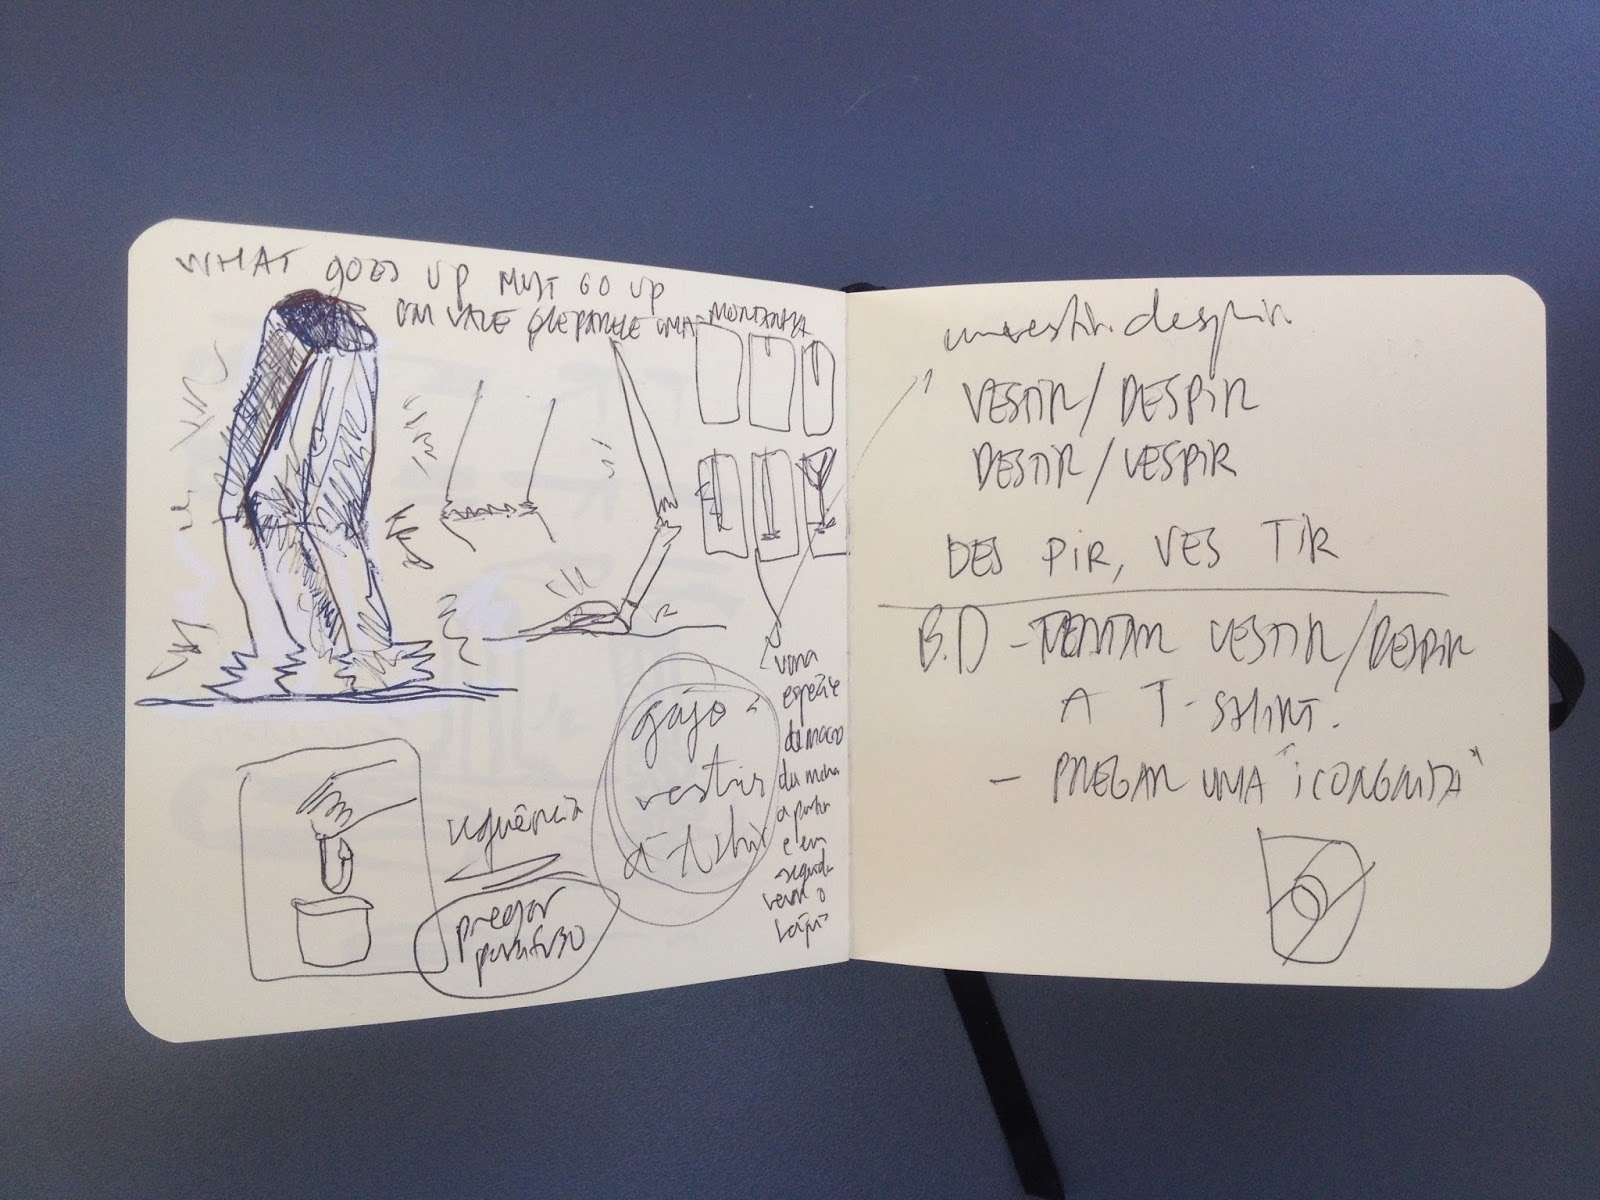 WHAT GOES UP MUST GO UP
UM VALE QUE PARECE UMA MONTANHA
uma
espécie
de macro
da minha
a partir
e em
seguida
vem o
gajo a
vestir
a t-shirt
sequência
pregar
parafuso
vestir. despir
VESTIR / DESPIR
DESTIR / VESPIR
DES PIR, VES TIR
B.D - TENTAR VESTIR / DESPIR
A T-SHIRT.
- PREGAR UMA